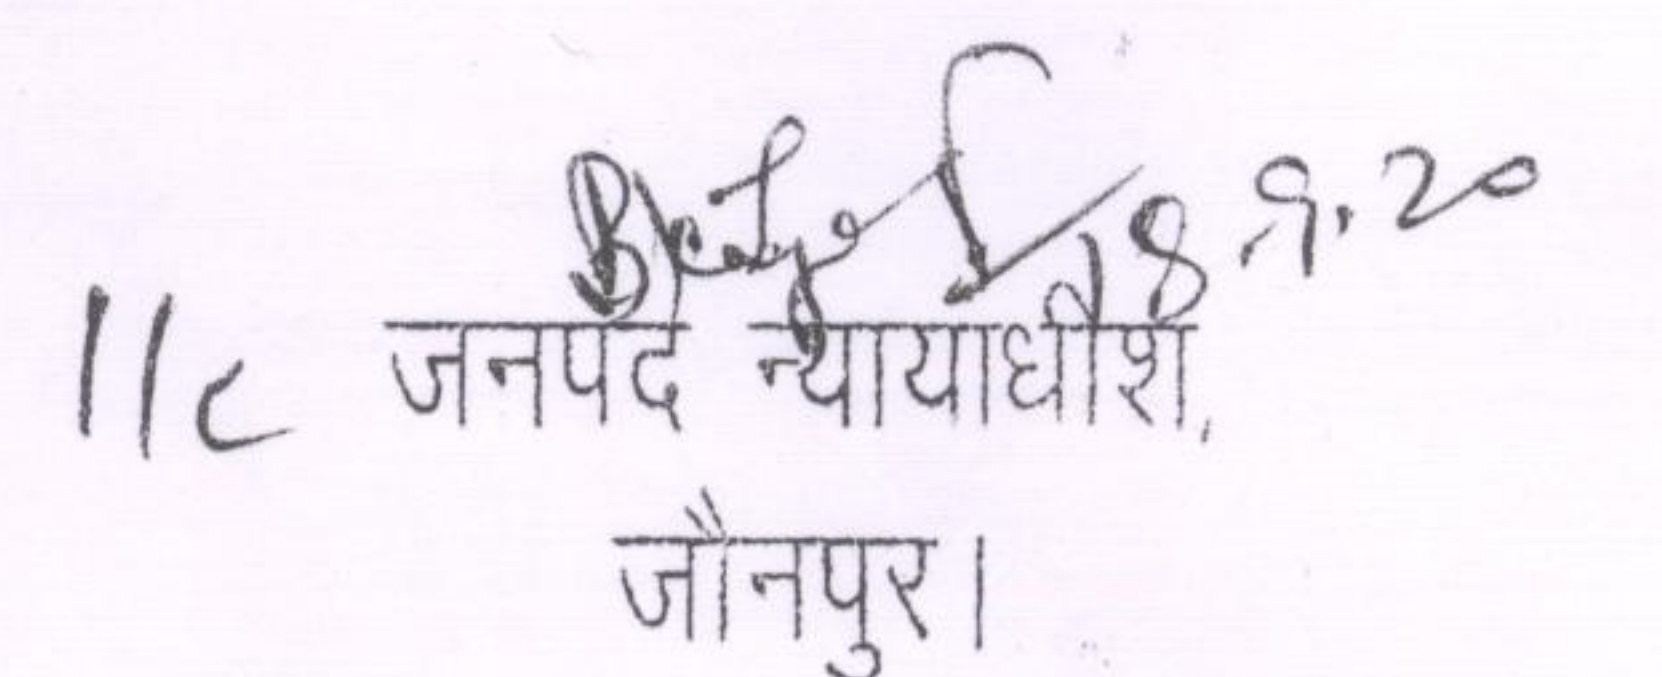 18.9.20
जनपद न्यायाधीश,
जौनपुर।